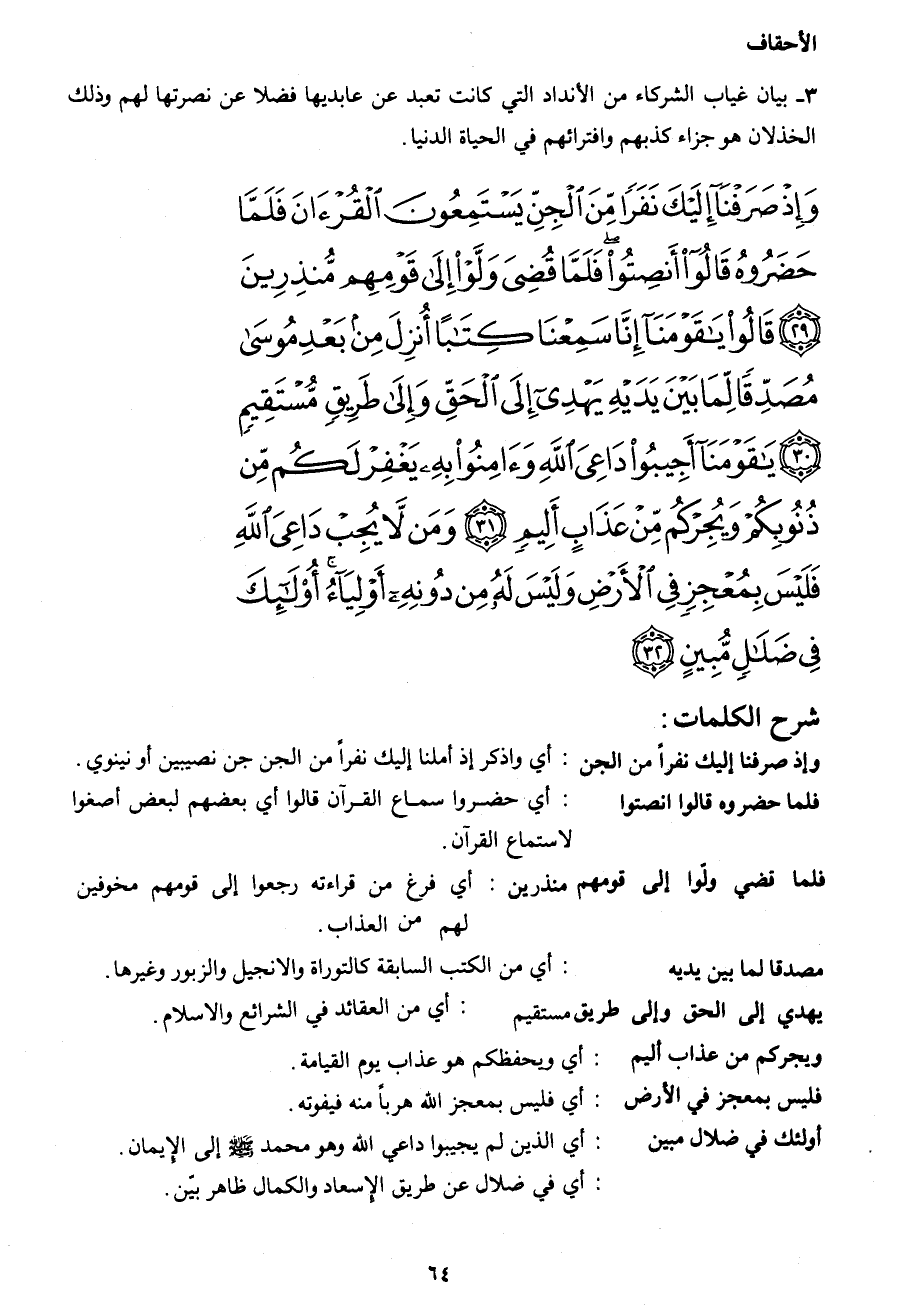 الأحقاف
٣ـ بيان غياب الشركاء من الأنداد التي كانت تعبد عن عابديها فضلا عن نصرتها لهم وذلك
الخذلان هو جزاء كذبهم وافترائهم في الحياة الدنيا.
وَإِذْ صَرَفْنَآ إِلَيْكَ نَفَرًا مِّنَ ٱلْجِنِّ يَسْتَمِعُونَ ٱلْقُرْءَانَ فَلَمَّا
حَضَرُوهُ قَالُوٓا۟ أَنصِتُوا۟ ۖ فَلَمَّا قُضِىَ وَلَّوْا۟ إِلَىٰ قَوْمِهِم مُّنذِرِينَ
﴿٢٩﴾ قَالُوا۟ يَـٰقَوْمَنَآ إِنَّا سَمِعْنَا كِتَـٰبًا أُنزِلَ مِنۢ بَعْدِ مُوسَىٰ
مُصَدِّقًا لِّمَا بَيْنَ يَدَيْهِ يَهْدِىٓ إِلَى ٱلْحَقِّ وَإِلَىٰ طَرِيقٍ مُّسْتَقِيمٍ
﴿٣٠﴾ يَـٰقَوْمَنَآ أَجِيبُوا۟ دَاعِىَ ٱللَّهِ وَءَامِنُوا۟ بِهِۦ يَغْفِرْ لَكُم مِّن
ذُنُوبِكُمْ وَيُجِرْكُم مِّنْ عَذَابٍ أَلِيمٍ ﴿٣١﴾ وَمَن لَّا يُجِبْ دَاعِىَ ٱللَّهِ
فَلَيْسَ بِمُعْجِزٍ فِى ٱلْأَرْضِ وَلَيْسَ لَهُۥ مِن دُونِهِۦٓ أَوْلِيَآءُ ۚ أُو۟لَـٰٓئِكَ
فِى ضَلَـٰلٍ مُّبِينٍ ﴿٣٢﴾
شرح الكلمات :
وإذ صرفنا إليك نفراً من الجن : أي واذكر إذ أملنا إليك نفراً من الجن جن نصيبين أو نينوي .
فلما حضروه قالوا انصتوا : أي حضروا سماع القرآن قالوا أي بعضهم لبعض أصغوا
لاستماع القرآن .
فلما قضي ولّوا إلى قومهم منذرين : أي فرغ من قراءته رجعوا إلى قومهم مخوفين
لهم من العذاب .
مصدقا لما بين يديه : أي من الكتب السابقة كالتوراة والانجيل والزبور وغيرها .
يهدي إلى الحق وإلى طريق مستقيم : أي من العقائد في الشرائع والاسلام .
ويجركم من عذاب أليم : أي ويحفظكم هو عذاب يوم القيامة .
فليس بمعجز في الأرض : أي فليس بمعجز الله هرباً منه فيفوته .
أولئك في ضلال مبين : أي الذين لم يجيبوا داعي الله وهو محمد ﷺ إلى الإيمان .
: أي في ضلال عن طريق الإسعاد والكمال ظاهر بيّن .
٦٤